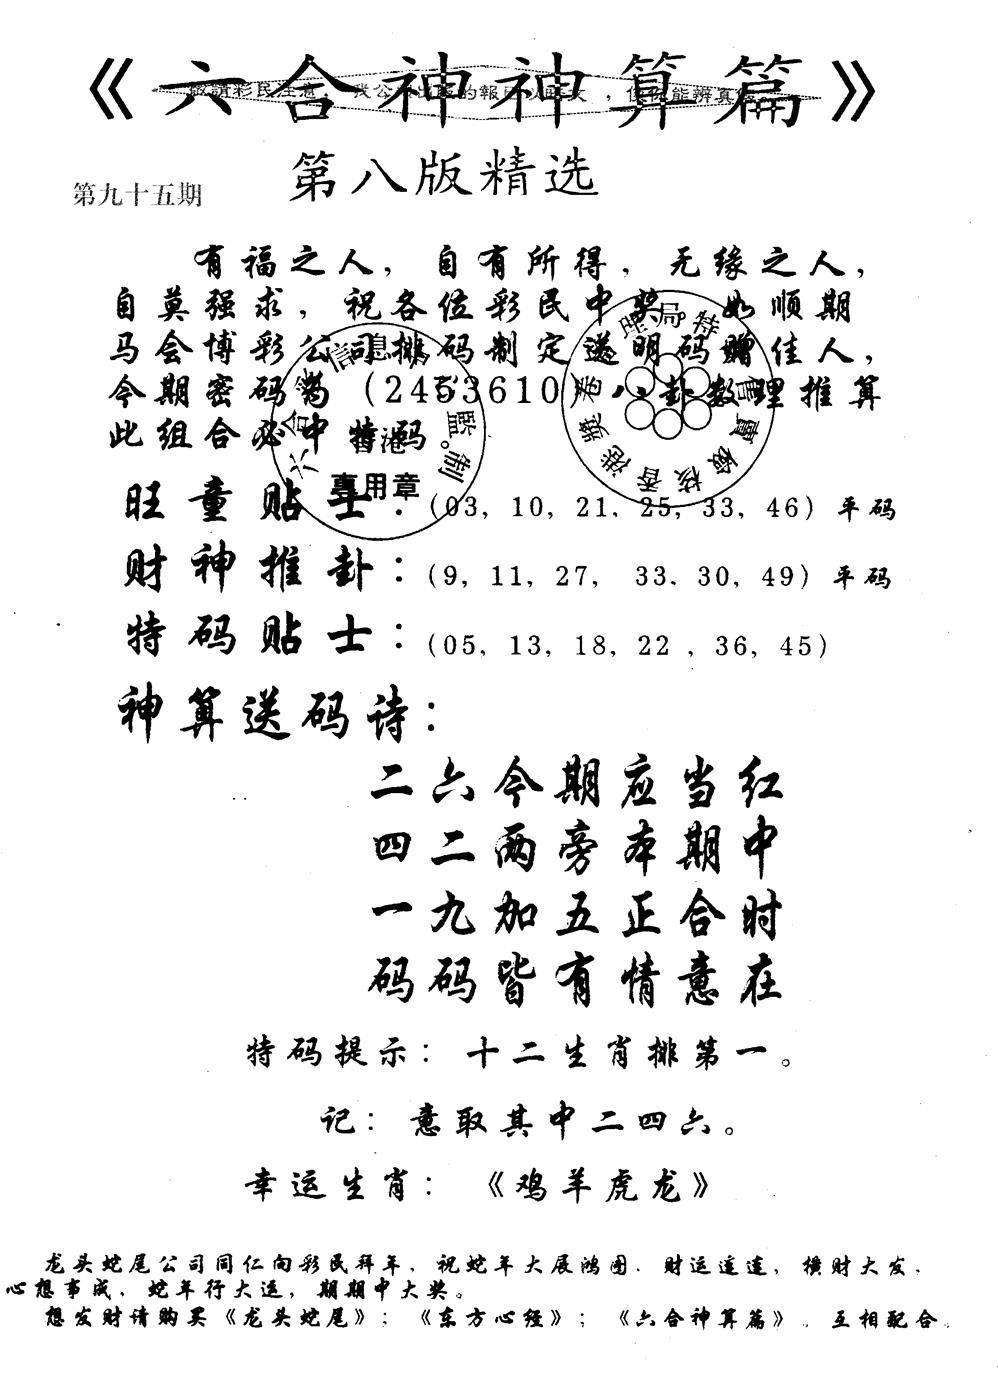 《六合神神算篇》
敬請彩民注意
第八版精选
第九十五期
有福之人，自有所得，无缘之人，
自莫强求，祝各位彩民中奖。如顺期
马会博彩公司排码制定送明码赠佳人，
今期密码为（2453610）八卦数理推算
此组合必中特码
香港
專用章
旺童贴士：（03，10，21，25，33，46）平码
财神推卦：（9，11，27， 33，30，49）平码
特码贴士：（05，13，18，22 ，36，45）
神算送码诗：
二六今期应当红
四二两旁本期中
一九加五正合时
码码皆有情意在
特码提示：十二生肖排第一。
记：意取其中二四六。
幸运生肖：《鸡羊虎龙》
龙头蛇尾公司同仁向彩民拜年，祝蛇年大展鸿图．财运连连，横财大发．
心想事成．蛇年行大运，期期中大奖。
想发财请购买《龙头蛇尾》；《东方心经》；《六合神算篇》．互相配合．